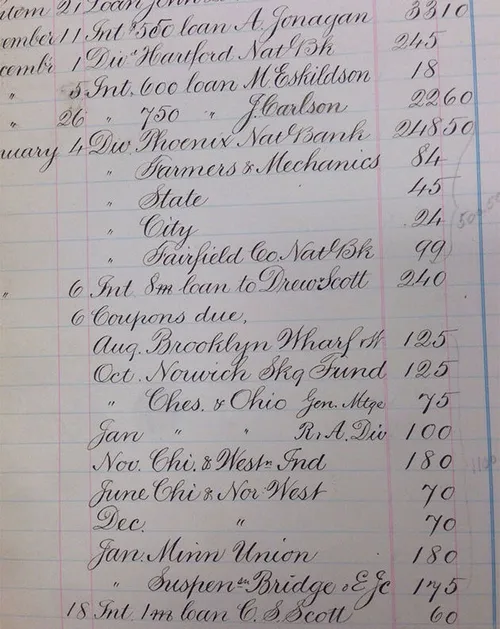 21 Loan
ember 11 Int $550 loan A. Jonagan 3310
cembr 1 Div Hartford Natl Bk 245
" 5 Int. 600 loan M Eskildson 18
" 26 " 750 " J. Carlson 2260
nuary 4 Div. Phoenix Natl Bank 24850
" Farmers & Mechanics 84
" State 45
" City 24
" Fairfield Co. Natl Bk 99
" 6 Int 8m loan to Drew Scott 240
6 Coupons due,
Aug. Brooklyn Wharf 125
Oct. Norwich Skg Fund 125
" Ches. & Ohio Gen. Mtge 75
Jan " " R. A. Div 100
Nov. Chi. & Westn Ind 180
June Chi & Nor West 70
Dec. " 70
Jan. Minn Union 180
" Suspen sn Bridge & E Jc 175
18 Int 1m loan C. S. Scott 60